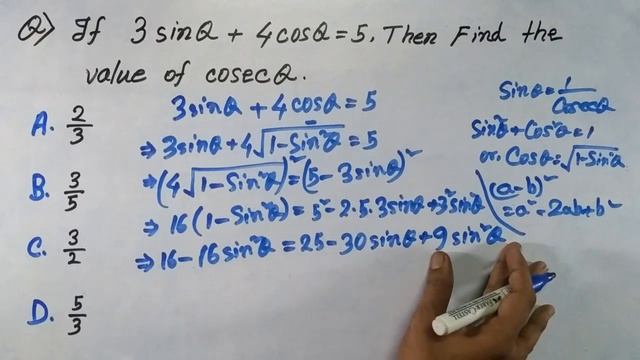 Q) If 3 sinθ + 4 cosθ = 5. Then Find the
value of cosecθ.
A. 2/3
B. 3/5
C. 3/2
D. 5/3
3sinθ + 4cosθ = 5
⇒ 3sinθ + 4√(1-Sin²θ) = 5
⇒ (4√(1-Sin²θ))² = (5-3sinθ)²
⇒ 16(1-Sin²θ) = 5² - 2.5.3sinθ + 3²sin²θ
⇒ 16 - 16sin²θ = 25 - 30sinθ + 9sin²θ
Sinθ = 1/Cosecθ
Sin²θ + Cos²θ = 1
or, Cosθ = √(1-Sin²θ)
(a-b)²
= a² - 2ab + b²